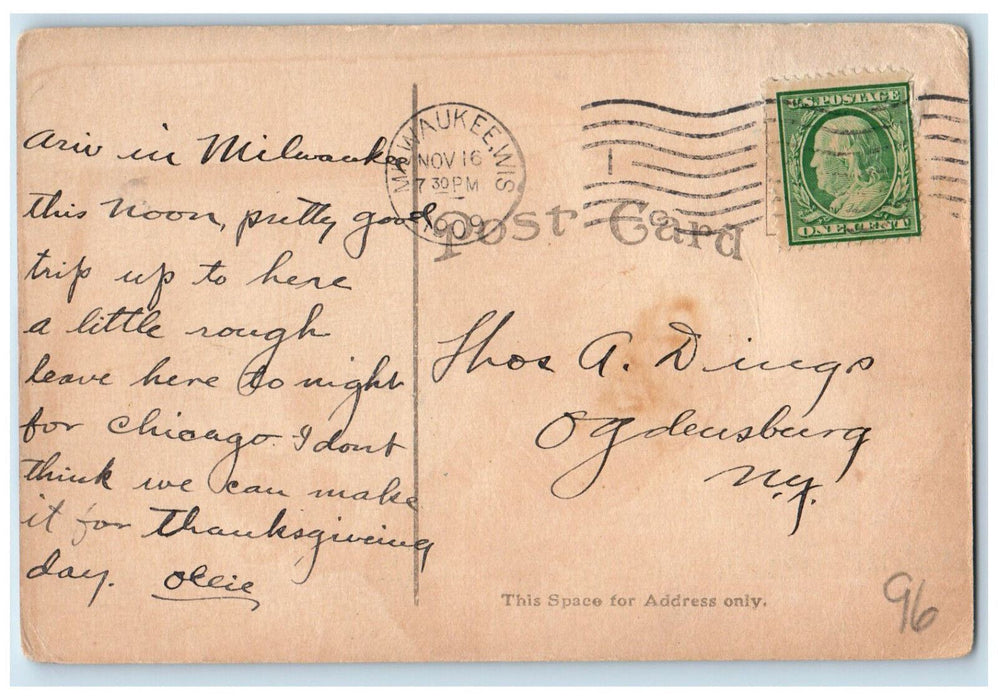 Ariv in Milwaukee
this Noon, pretty good
trip up to here
a little rough
leave here to night
for Chicago. I dont
think we can make
it for Thanksgiving
day. Ollie
MILWAUKEE, WIS
NOV 16
7 30 PM
1909
1
U.S. POSTAGE
ONE CENT
Post Card
Thos A. Dings
Ogdensburg
N.Y.
This Space for Address only.
96